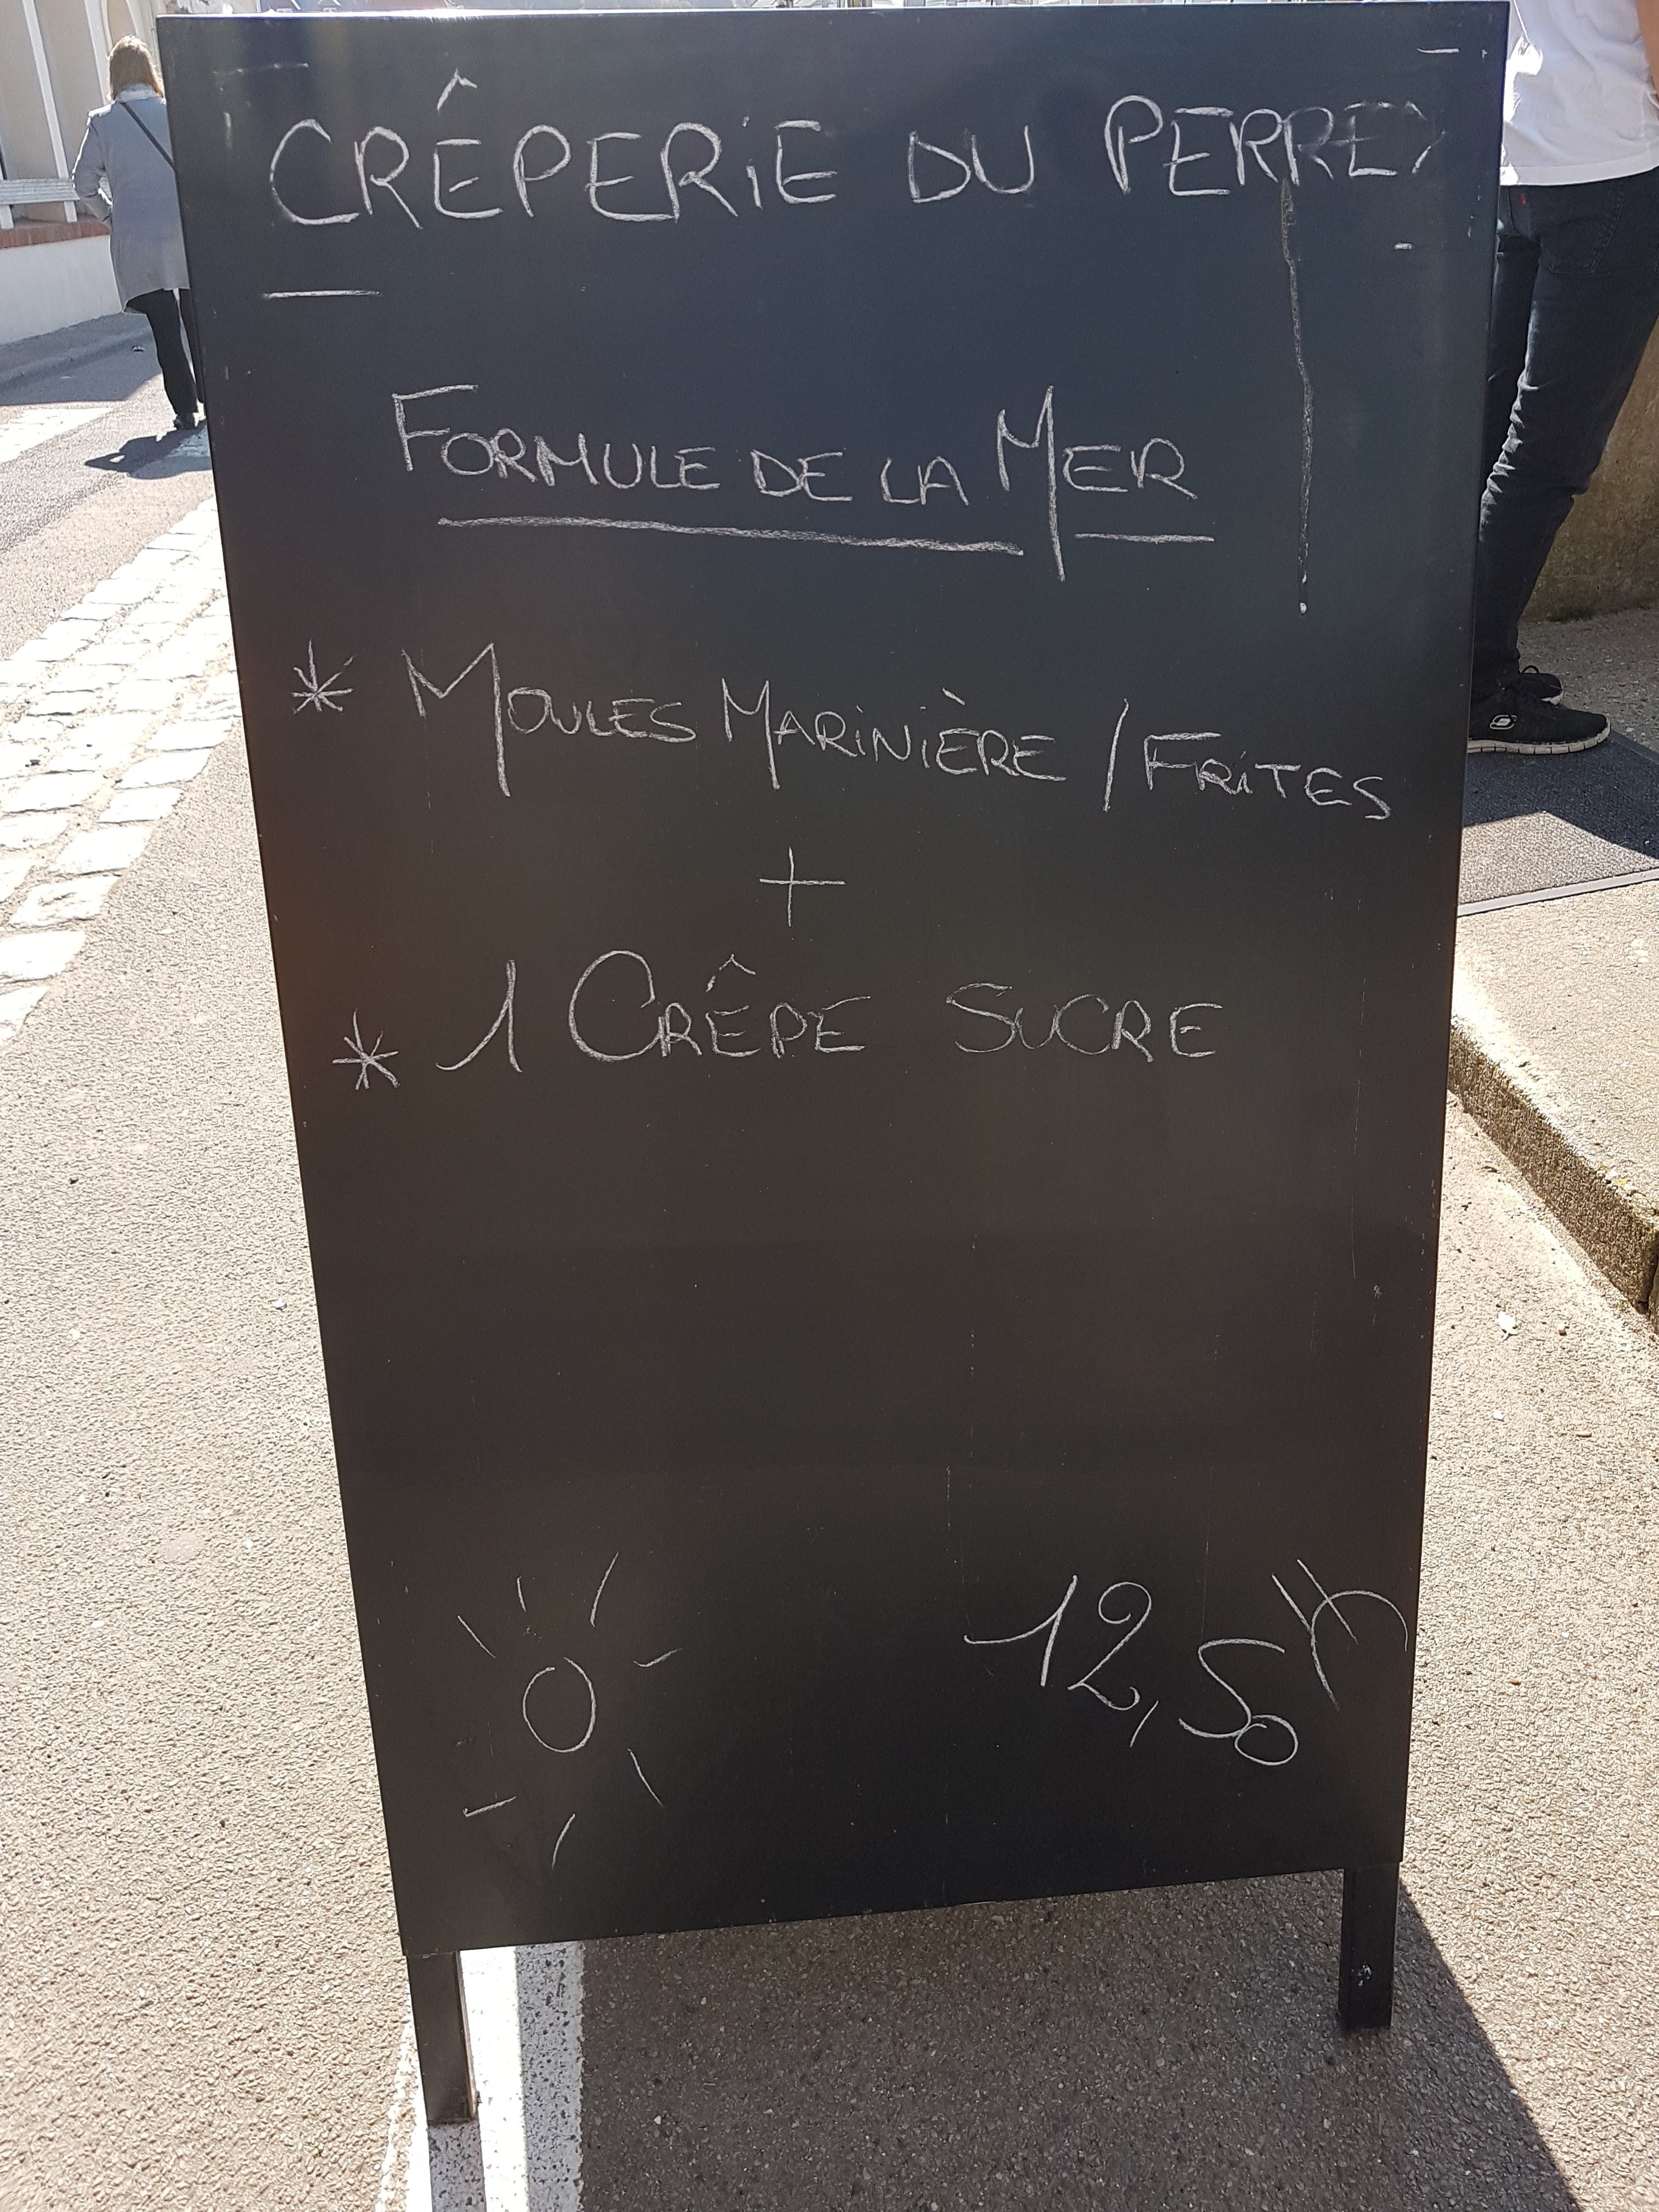 CRÊPERIE DU PERREY
FORMULE DE LA MER
* MOULES MARINIÈRE / FRITES
+
* 1 CRÊPE SUCRE
12,50€